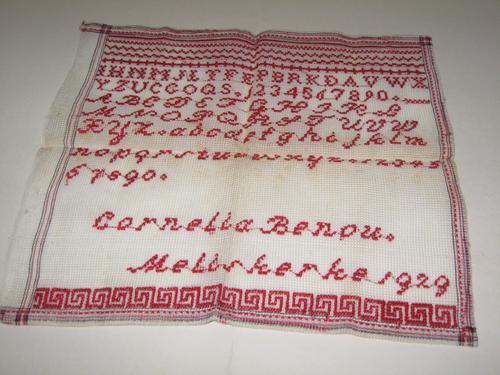 IHNMJLTFEPBRKDAVVWX
YZUCGOQS.1234567890.
ABCDEFGHIJKL
MNOPQRSTUVW
XYZ.abcdefghijklm
nopqrstuvwxyz.12345
67890.
Cornelia Benou.
Meliskerke 1929